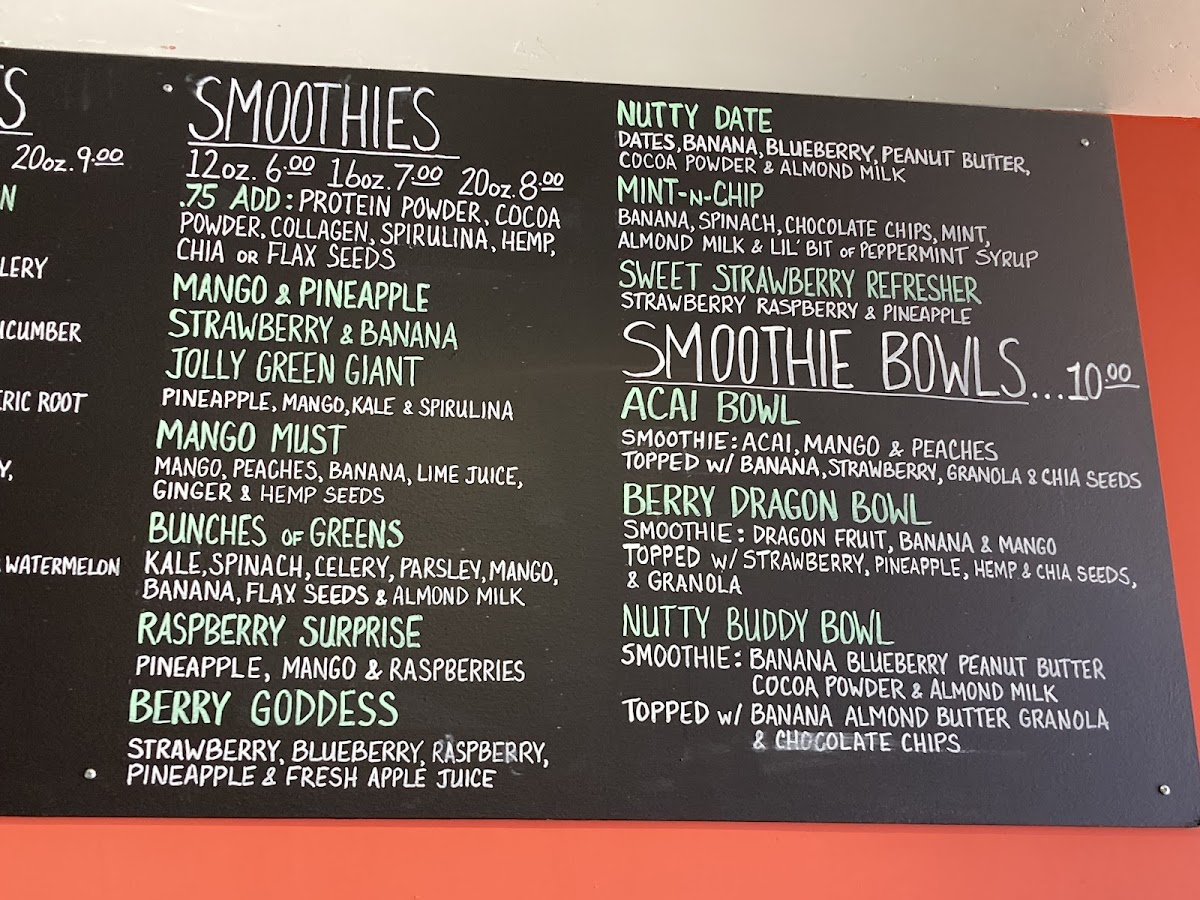 S
20oz. 9.00
N
LERY
CUMBER
ERIC ROOT
Y,
WATERMELON
SMOOTHIES
12oz. 6.00 16oz. 7.00 20oz. 8.00
.75 ADD: PROTEIN POWDER, COCOA
POWDER, COLLAGEN, SPIRULINA, HEMP,
CHIA OR FLAX SEEDS
MANGO & PINEAPPLE
STRAWBERRY & BANANA
JOLLY GREEN GIANT
PINEAPPLE, MANGO, KALE & SPIRULINA
MANGO MUST
MANGO, PEACHES, BANANA, LIME JUICE,
GINGER & HEMP SEEDS
BUNCHES OF GREENS
KALE, SPINACH, CELERY, PARSLEY, MANGO,
BANANA, FLAX SEEDS & ALMOND MILK
RASPBERRY SURPRISE
PINEAPPLE, MANGO & RASPBERRIES
BERRY GODDESS
STRAWBERRY, BLUEBERRY, RASPBERRY,
PINEAPPLE & FRESH APPLE JUICE
NUTTY DATE
DATES, BANANA, BLUEBERRY, PEANUT BUTTER,
COCOA POWDER & ALMOND MILK
MINT-N-CHIP
BANANA, SPINACH, CHOCOLATE CHIPS, MINT,
ALMOND MILK & LIL' BIT OF PEPPERMINT SYRUP
SWEET STRAWBERRY REFRESHER
STRAWBERRY RASPBERRY & PINEAPPLE
SMOOTHIE BOWLS...10.00
ACAI BOWL
SMOOTHIE: ACAI, MANGO & PEACHES
TOPPED W/ BANANA, STRAWBERRY, GRANOLA & CHIA SEEDS
BERRY DRAGON BOWL
SMOOTHIE: DRAGON FRUIT, BANANA & MANGO
TOPPED W/ STRAWBERRY, PINEAPPLE, HEMP & CHIA SEEDS,
& GRANOLA
NUTTY BUDDY BOWL
SMOOTHIE: BANANA BLUEBERRY PEANUT BUTTER
COCOA POWDER & ALMOND MILK
TOPPED W/ BANANA ALMOND BUTTER GRANOLA
& CHOCOLATE CHIPS